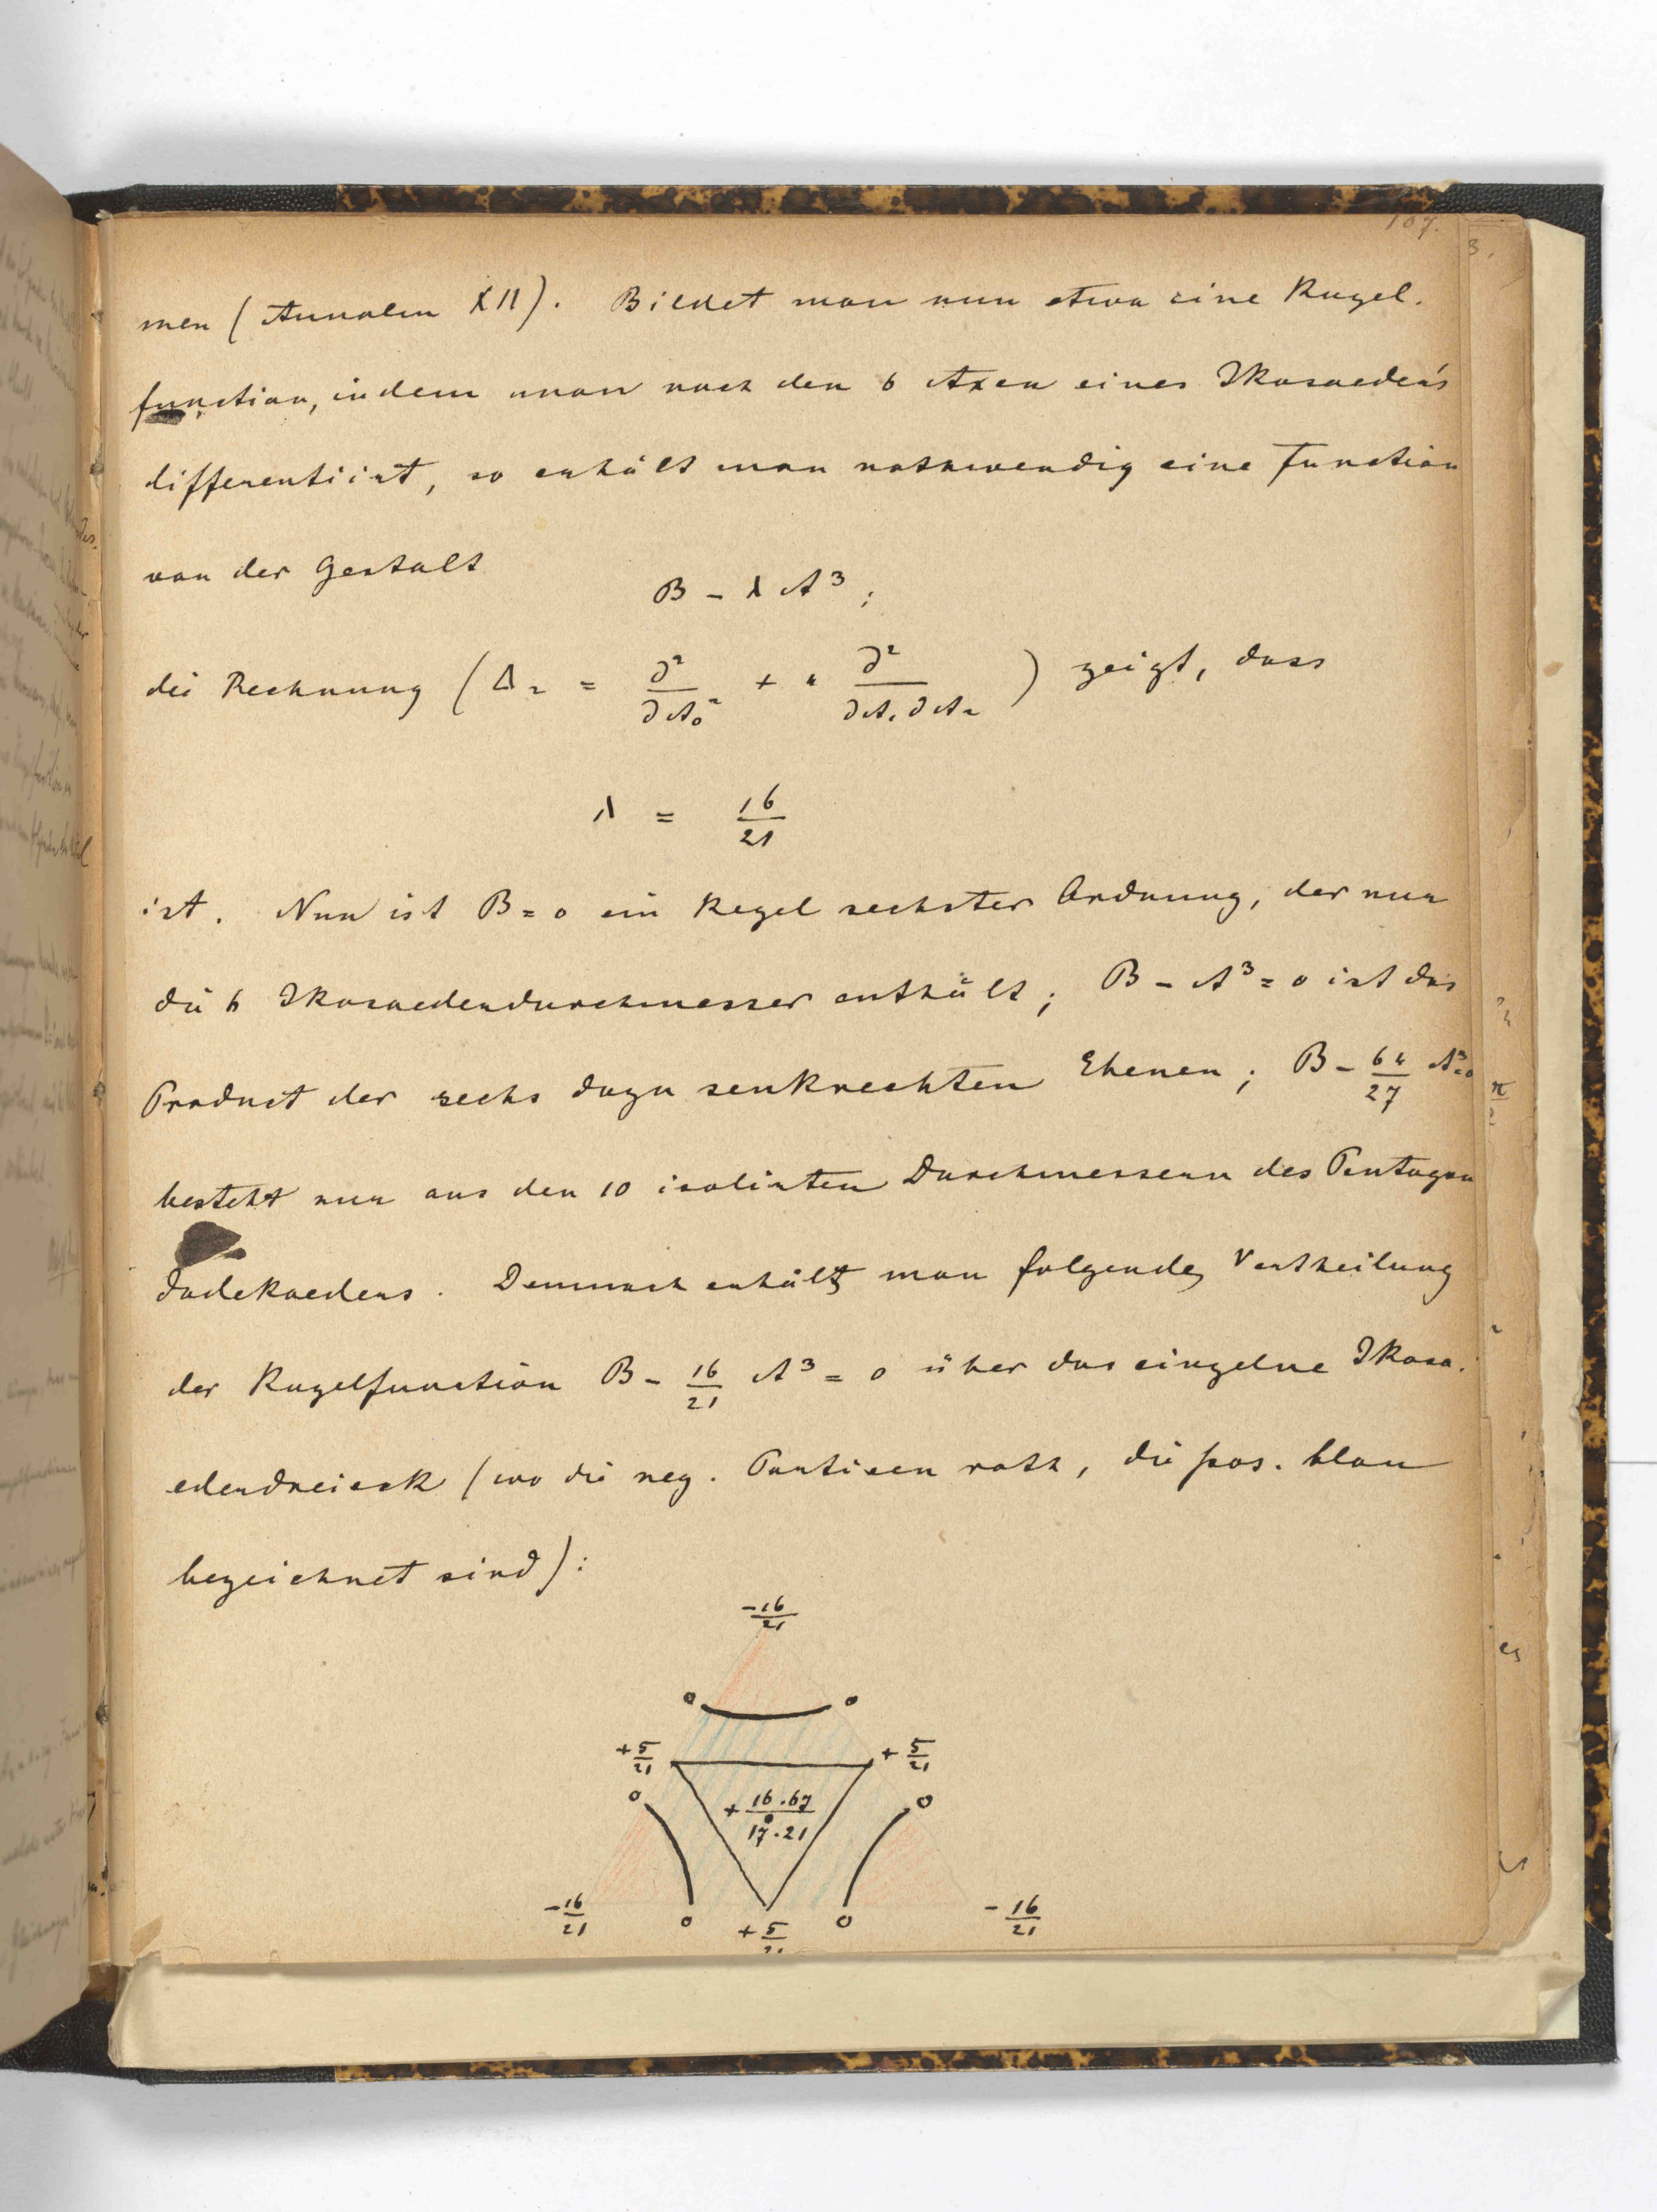 107.
men (Annalen XII). Bildet man nun etwa eine Kugel-
function, indem man nach den 6 Axen eines Ikosaeders
differentiirt, so erhält man nothwendig eine Function
von der Gestalt
B - λ A³;
die Rechnung (Δ₂ = ∂²/∂A₀² + ∂²/∂A₁∂A₂) zeigt, dass
λ = 16/21
ist. Nun ist B = 0 ein Kegel sechster Ordnung, der nur
die 6 Ikosaederdurchmesser enthält; B - A³ = 0 ist das
Product der sechs dazu senkrechten Ebenen; B - 64/27 A³=0
besteht nur aus den 10 isolirten Durchmessern des Pentagon
dodekaeders. Demnach erhält man folgende Vertheilung
der Kugelfunction B - 16/21 A³ = 0 über das einzelne Ikosa-
ederdreieck (wo die neg. Partieen roth, die pos. blau
bezeichnet sind):
-16/21
0 0
+5/21 +5/21
0 +16·67/17·21 0
-16/21 0 +5/21 0 -16/21